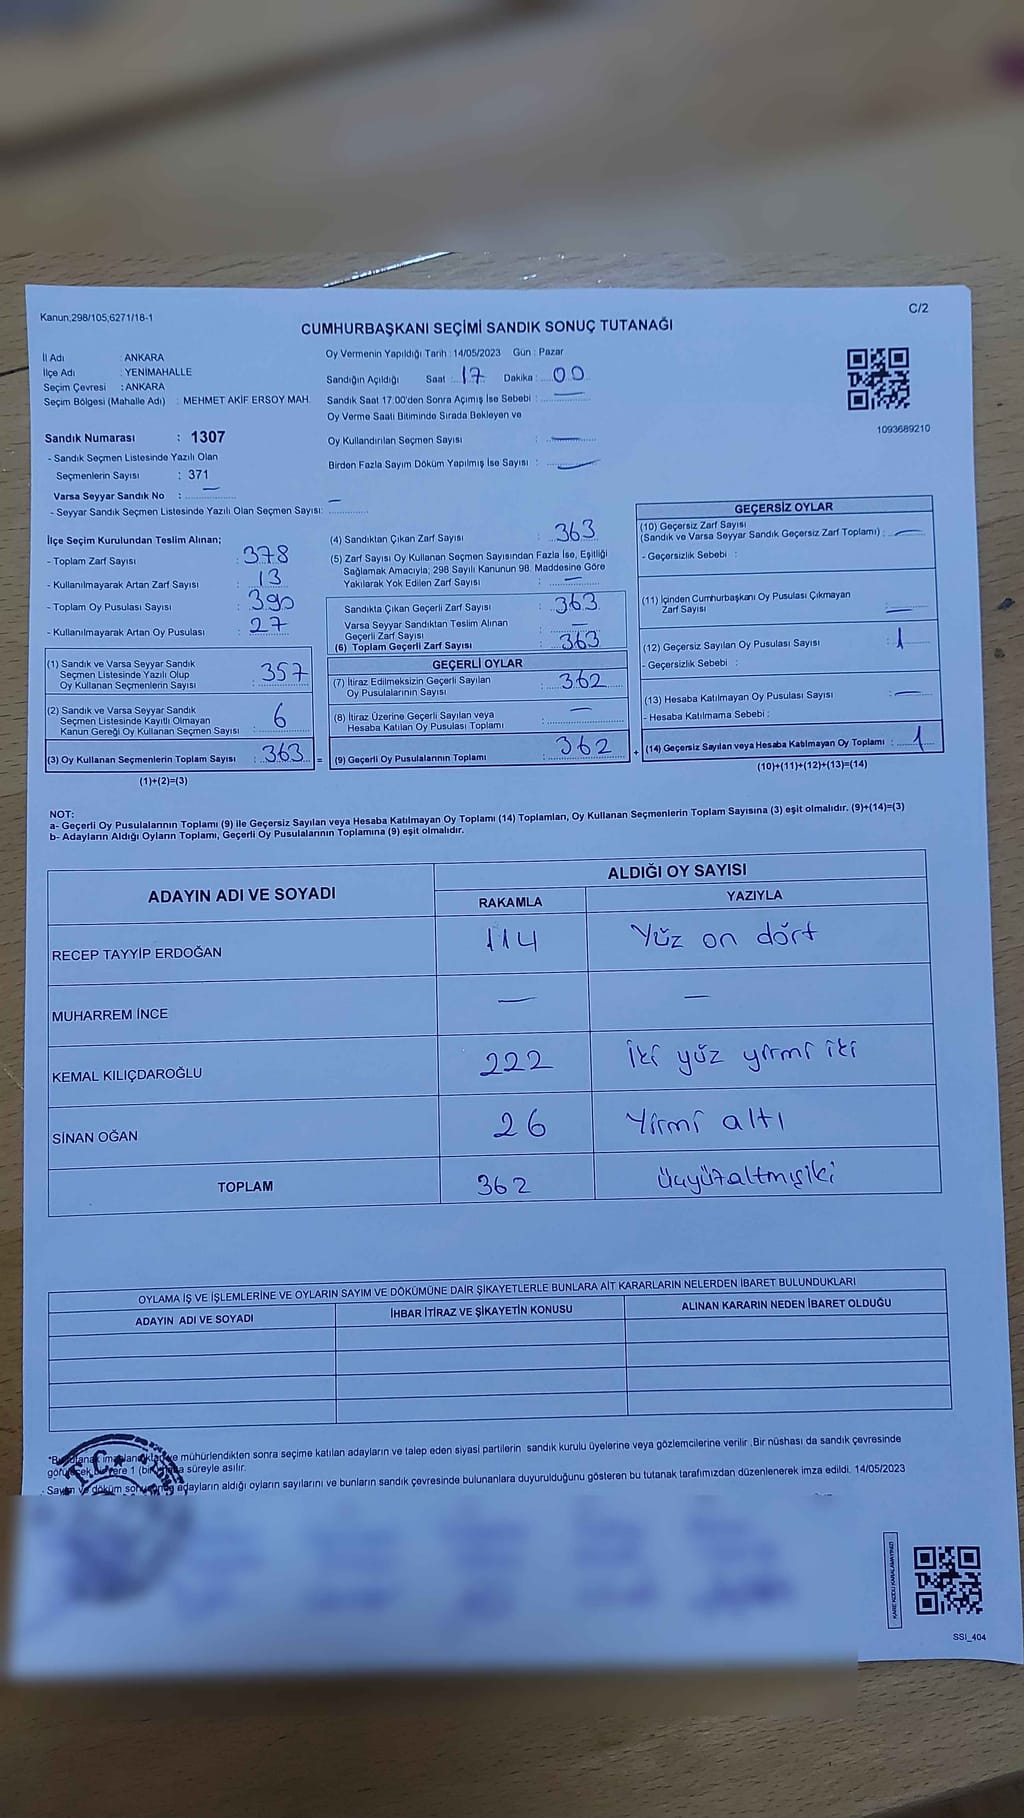 Kanun;298/105;6271/18-1
C/2
CUMHURBAŞKANI SEÇİMİ SANDIK SONUÇ TUTANAĞI
İl Adı : ANKARA
İlçe Adı : YENİMAHALLE
Seçim Çevresi : ANKARA
Seçim Bölgesi (Mahalle Adı) : MEHMET AKİF ERSOY MAH.
Oy Vermenin Yapıldığı Tarih : 14/05/2023 Gün : Pazar
Sandığın Açıldığı Saat : 17 Dakika : 00
Sandık Saat 17:00'den Sonra Açımış İse Sebebi : —
Oy Verme Saati Bitiminde Sırada Bekleyen ve
Oy Kullandırılan Seçmen Sayısı : —
Birden Fazla Sayım Döküm Yapılmış İse Sayısı : —
1093689210
Sandık Numarası : 1307
- Sandık Seçmen Listesinde Yazılı Olan
Seçmenlerin Sayısı : 371
Varsa Seyyar Sandık No : —
- Seyyar Sandık Seçmen Listesinde Yazılı Olan Seçmen Sayısı: —
İlçe Seçim Kurulundan Teslim Alınan;
- Toplam Zarf Sayısı : 378
- Kullanılmayarak Artan Zarf Sayısı : 13
- Toplam Oy Pusulası Sayısı : 390
- Kullanılmayarak Artan Oy Pusulası : 27
(1) Sandık ve Varsa Seyyar Sandık
Seçmen Listesinde Yazılı Olup
Oy Kullanan Seçmenlerin Sayısı : 357
(2) Sandık ve Varsa Seyyar Sandık
Seçmen Listesinde Kayıtlı Olmayan
Kanun Gereği Oy Kullanan Seçmen Sayısı : 6
(3) Oy Kullanan Seçmenlerin Toplam Sayısı : 363 =
(1)+(2)=(3)
(4) Sandıktan Çıkan Zarf Sayısı : 363
(5) Zarf Sayısı Oy Kullanan Seçmen Sayısından Fazla İse, Eşitliği
Sağlamak Amacıyla; 298 Sayılı Kanunun 98. Maddesine Göre
Yakılarak Yok Edilen Zarf Sayısı : —
Sandıkta Çıkan Geçerli Zarf Sayısı : 363
Varsa Seyyar Sandıktan Teslim Alınan
Geçerli Zarf Sayısı : —
(6) Toplam Geçerli Zarf Sayısı : 363
GEÇERLİ OYLAR
(7) İtiraz Edilmeksizin Geçerli Sayılan
Oy Pusulalarının Sayısı : 362
(8) İtiraz Üzerine Geçerli Sayılan veya
Hesaba Katılan Oy Pusulası Toplamı : —
(9) Geçerli Oy Pusulalarının Toplamı : 362 +
GEÇERSİZ OYLAR
(10) Geçersiz Zarf Sayısı
(Sandık ve Varsa Seyyar Sandık Geçersiz Zarf Toplamı) : —
- Geçersizlik Sebebi :
(11) İçinden Cumhurbaşkanı Oy Pusulası Çıkmayan
Zarf Sayısı : —
(12) Geçersiz Sayılan Oy Pusulası Sayısı : 1
- Geçersizlik Sebebi :
(13) Hesaba Katılmayan Oy Pusulası Sayısı : —
- Hesaba Katılmama Sebebi :
(14) Geçersiz Sayılan veya Hesaba Katılmayan Oy Toplamı : 1
(10)+(11)+(12)+(13)=(14)
NOT:
a- Geçerli Oy Pusulalarının Toplamı (9) ile Geçersiz Sayılan veya Hesaba Katılmayan Oy Toplamı (14) Toplamları, Oy Kullanan Seçmenlerin Toplam Sayısına (3) eşit olmalıdır. (9)+(14)=(3)
b- Adayların Aldığı Oyların Toplamı, Geçerli Oy Pusulalarının Toplamına (9) eşit olmalıdır.
ADAYIN ADI VE SOYADI ALDIĞI OY SAYISI
RAKAMLA YAZIYLA
RECEP TAYYİP ERDOĞAN 114 Yüz on dört
MUHARREM İNCE — —
KEMAL KILIÇDAROĞLU 222 İki yüz yirmi iki
SİNAN OĞAN 26 Yirmi altı
TOPLAM 362 Üçyüzaltmışiki
OYLAMA İŞ VE İŞLEMLERİNE VE OYLARIN SAYIM VE DÖKÜMÜNE DAİR ŞİKAYETLERLE BUNLARA AİT KARARLARIN NELERDEN İBARET BULUNDUKLARI
ADAYIN ADI VE SOYADI İHBAR İTİRAZ VE ŞİKAYETİN KONUSU ALINAN KARARIN NEDEN İBARET OLDUĞU
ve mühürlendikten sonra seçime katılan adayların ve talep eden siyasi partilerin sandık kurulu üyelerine veya gözlemcilerine verilir .Bir nüshası da sandık çevresinde
süreyle asılır.
- Sayım ve döküm adayların aldığı oyların sayılarını ve bunların sandık çevresinde bulunanlara duyurulduğunu gösteren bu tutanak tarafımızdan düzenlenerek imza edildi. 14/05/2023
T.C.
KARE KODU KARALAMAYINIZ!
SSI_404